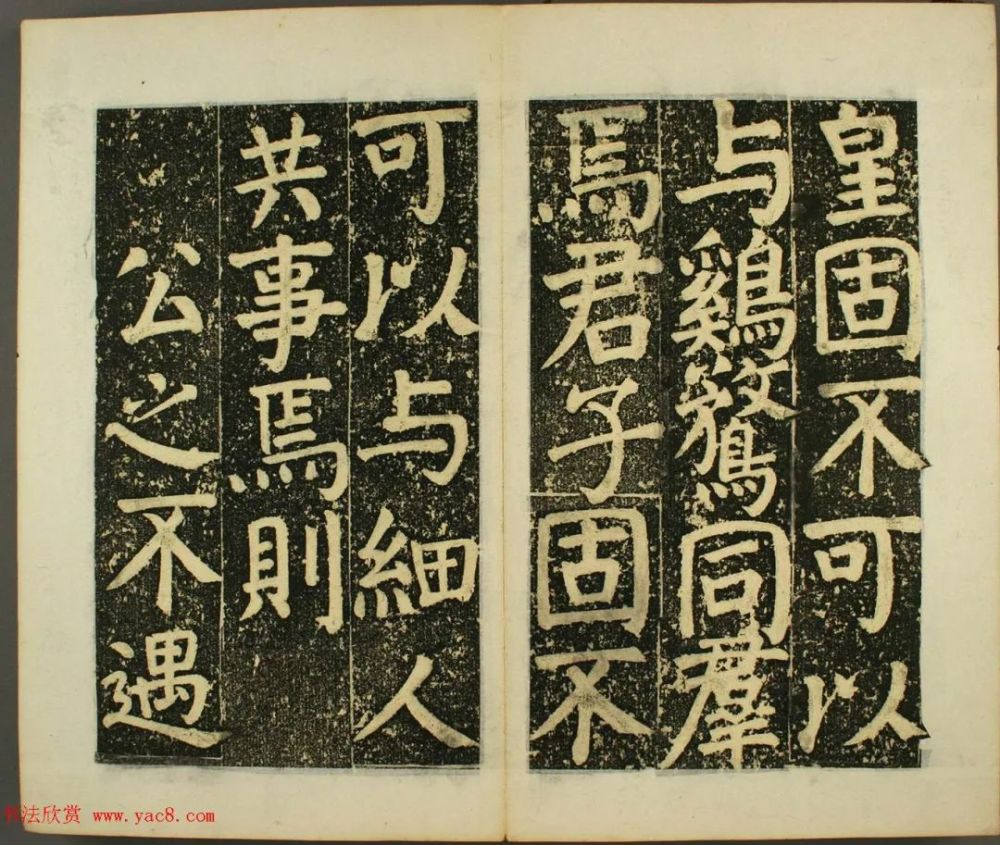 皇固不可以
与鷄鶩同羣
焉君子固不
可以与細人
共事焉則
公之不遇
书法欣赏 www.yac8.com